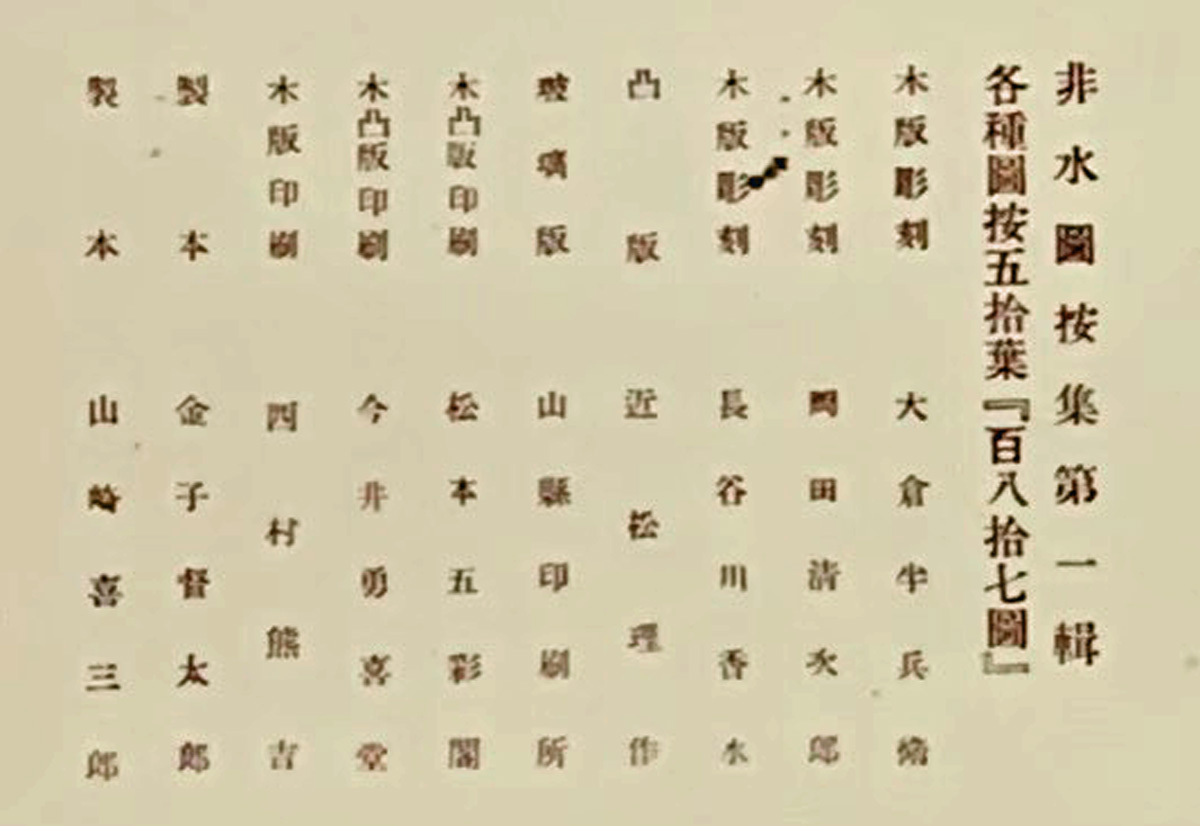 非水圖按集第一輯
各種圖按五拾葉『百八拾七圖』
木版彫刻 大倉半兵衞
木版彫刻 岡田清次郎
木版彫刻 長谷川香水
凸版 近松理作
玻璃版 山縣印刷所
木凸版印刷 松本五彩閣
木凸版印刷 今井勇喜堂
木版印刷 西村熊吉
製本 金子督太郎
製本 山崎喜三郎